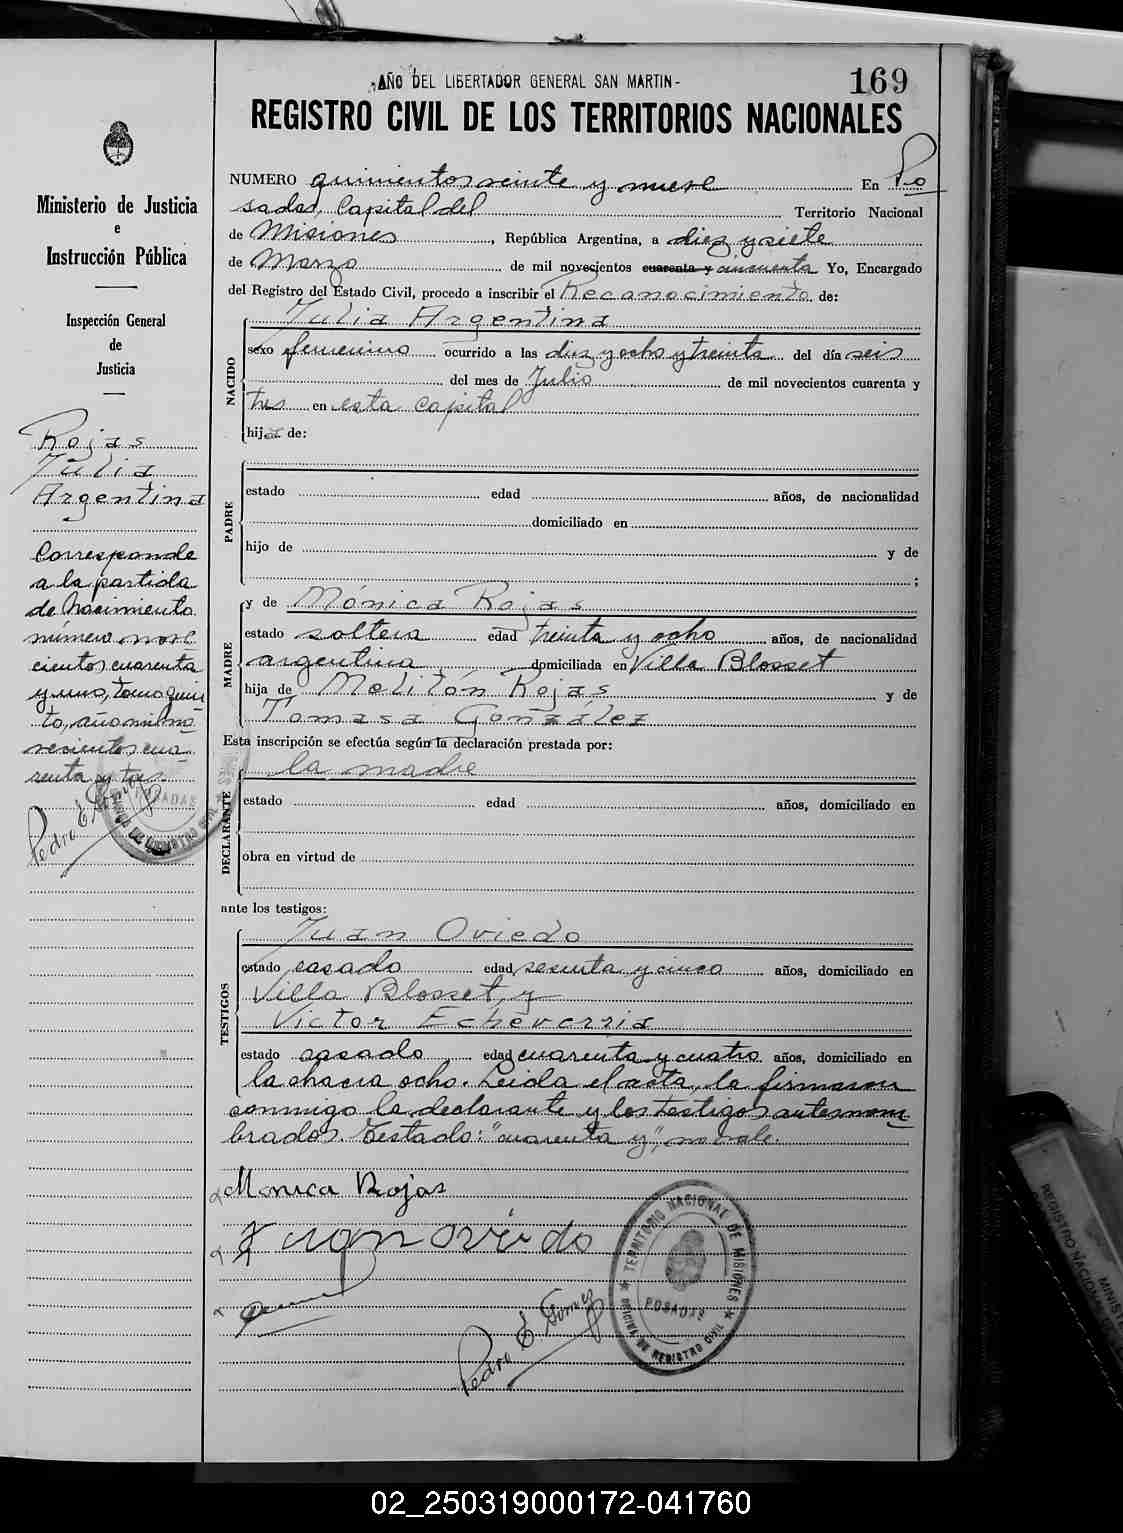 -AÑO DEL LIBERTADOR GENERAL SAN MARTIN-
169
REGISTRO CIVIL DE LOS TERRITORIOS NACIONALES
Ministerio de Justicia
e
Instrucción Pública
Inspección General
de
Justicia
Rojas
Julia
Argentina
Corresponde
a la partida
de Nacimiento
número nove
cientos cuarenta
y uno, tomo quin
to, año mil no
vecientos cua
renta y tres.
Pedro E. Gomez
NUMERO quinientos veinte y nueve En Po
sadas, Capital del Territorio Nacional
de Misiones, República Argentina, a diez y siete
de Marzo de mil novecientos cuarenta y cincuenta Yo, Encargado
del Registro del Estado Civil, procedo a inscribir el Reconocimiento de:
NACIDO
Julia Argentina
sexo femenino ocurrido a las diez y ocho y treinta del día seis
del mes de Julio de mil novecientos cuarenta y
tres en esta capital
hija de:
PADRE
estado edad años, de nacionalidad
domiciliado en
hijo de y de
;
MADRE
y de Mónica Rojas
estado soltera edad treinta y ocho años, de nacionalidad
argentina domiciliada en Villa Blosset
hija de Melitón Rojas y de
Tomasa González
Esta inscripción se efectúa según la declaración prestada por:
DECLARANTE
la madre
estado edad años, domiciliado en
obra en virtud de
ante los testigos:
TESTIGOS
Juan Oviedo
estado casado edad sesenta y cinco años, domiciliado en
Villa Blosset, y
Victor Echeverria
estado casado edad cuarenta y cuatro años, domiciliado en
la chacra ocho. Leida el acta, la firmaron
conmigo la declarante y los testigos antesnom
brados. Testado: "cuarenta y", no vale.
Monica Rojas
Juan Oviedo
Pedro E. Gomez
TERRITORIO NACIONAL DE MISIONES
POSADAS
OFICINA DE REGISTRO CIVIL
02_250319000172-041760